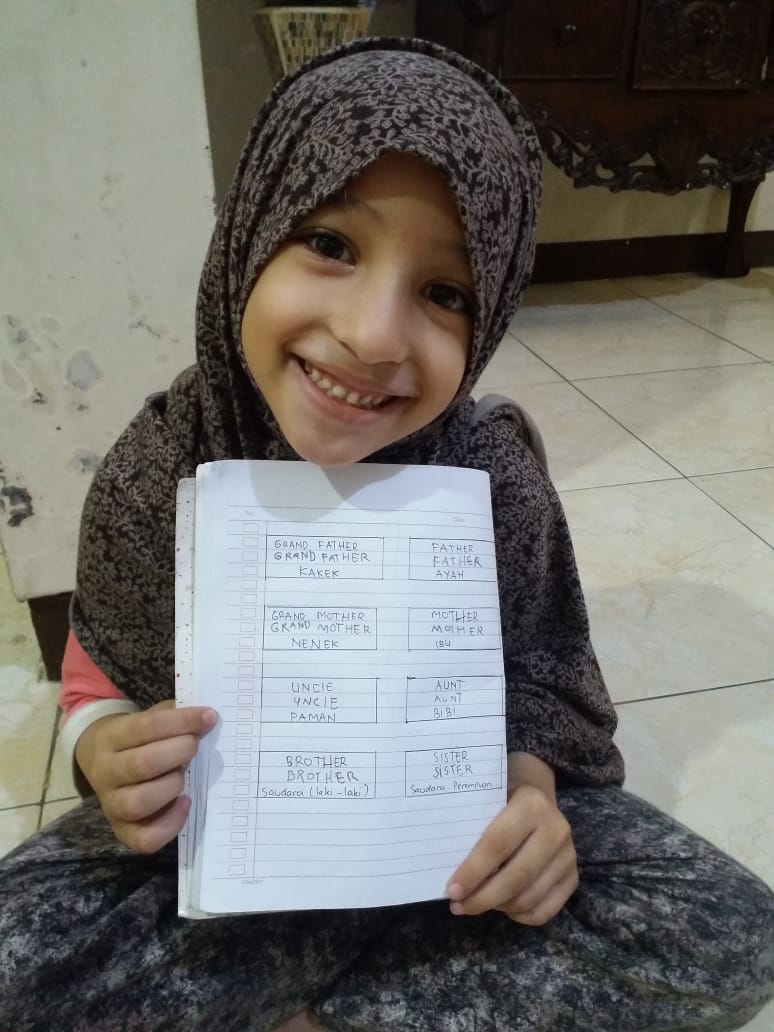 No.
Date
GRAND FATHER
GRAND FATHER
KAKEK
FATHER
FATHER
AYAH
GRAND MOTHER
GRAND MOTHER
NENEK
MOTHER
MOTHER
IBU
UNCLE
YNCLE
PAMAN
AUNT
AUNT
BIBI
BROTHER
BROTHER
Saudara (laki-laki)
SISTER
SISTER
Saudara Perempuan